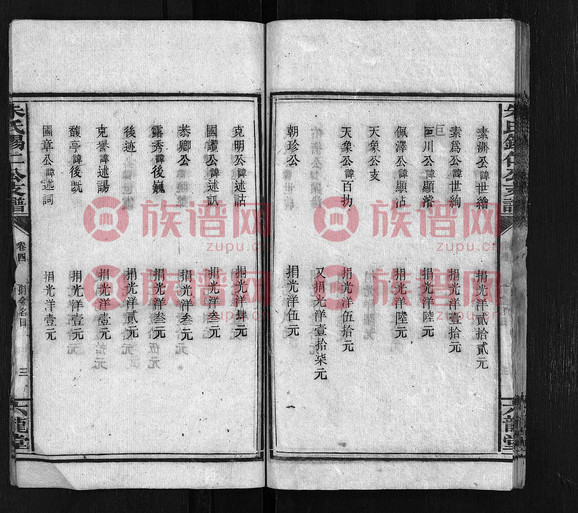 素洲公諱世綸　捐光洋貳拾貳元
素爲公諱世約　捐光洋壹拾元
巨川公諱顯灐　捐光洋陸元
佩澤公諱顯沾　捐光洋陸元
天象公支　捐光洋伍拾元
天象公諱百揚　又捐光洋壹拾柒元
朝珍公　捐光洋伍元
克明公諱述詁　捐光洋肆元
國耀公諱述　捐光洋叁元
泰卿公　捐光洋叁元
露秀公諱後　捐光洋叁元
後述　捐光洋貳元
克譽公諱述諹　捐光洋壹元
馥亭公諱後　捐光洋壹元
國章公諱述詞　捐光洋壹元
朱氏錫仁公支譜
卷四
捐金名目
三
六龍堂
族谱网
zupu.cn